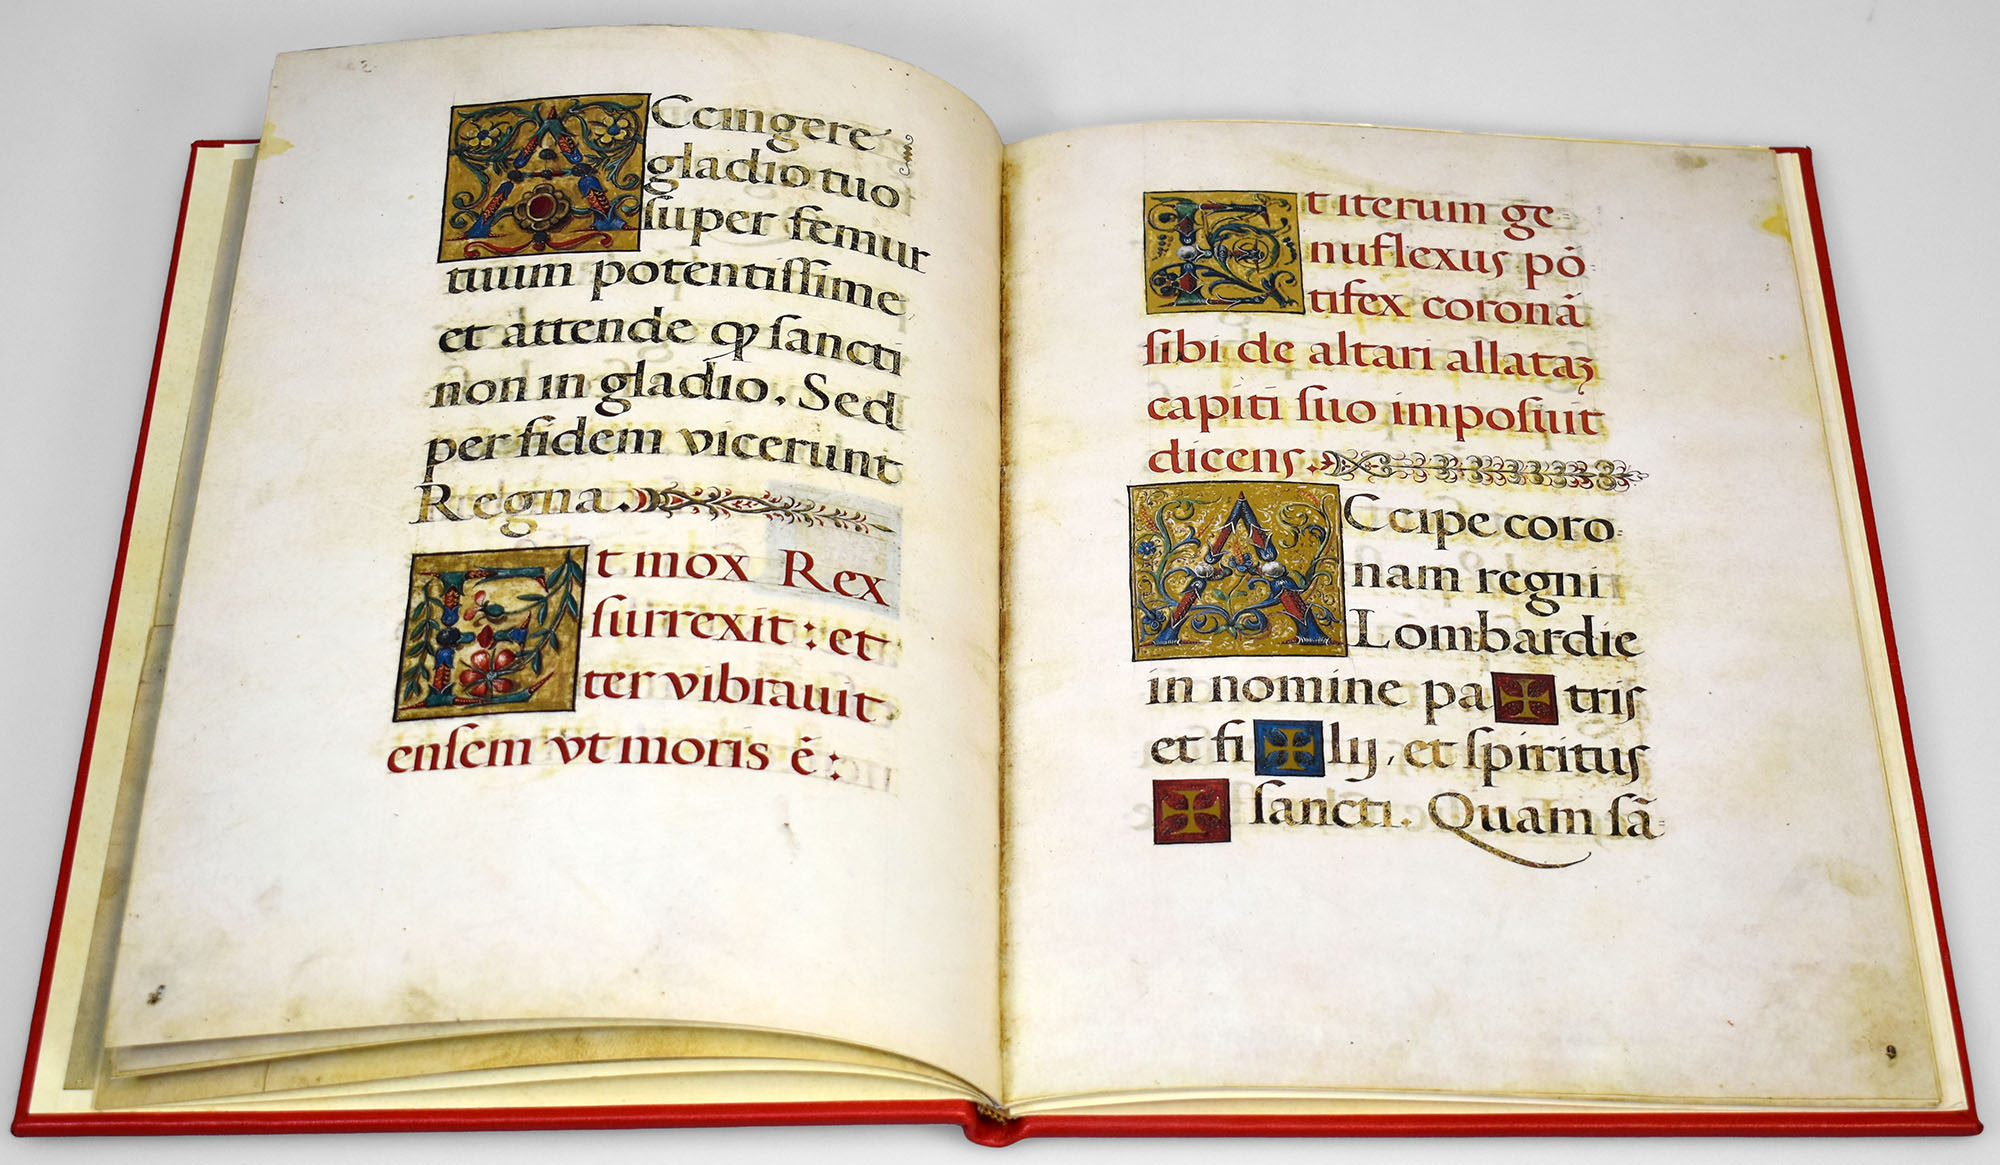 Accingere
gladio tuo
super femur
tuum potentissime
et attende qꝫ sancti
non in gladio. Sed
per fidem vicerunt
Regna.
Et mox Rex
surrexit: et
ter vibrauit
ensem vt moris ē:
Et iterum ge-
nuflexus pō
tifex coronā
sibi de altari allataꝫ
capiti suo imposuit
dicens.
Accipe coro-
nam regni
Lombardie
in nomine pa✠tris
et fi✠lij, et spiritus
✠ sancti. Quam sā-
9